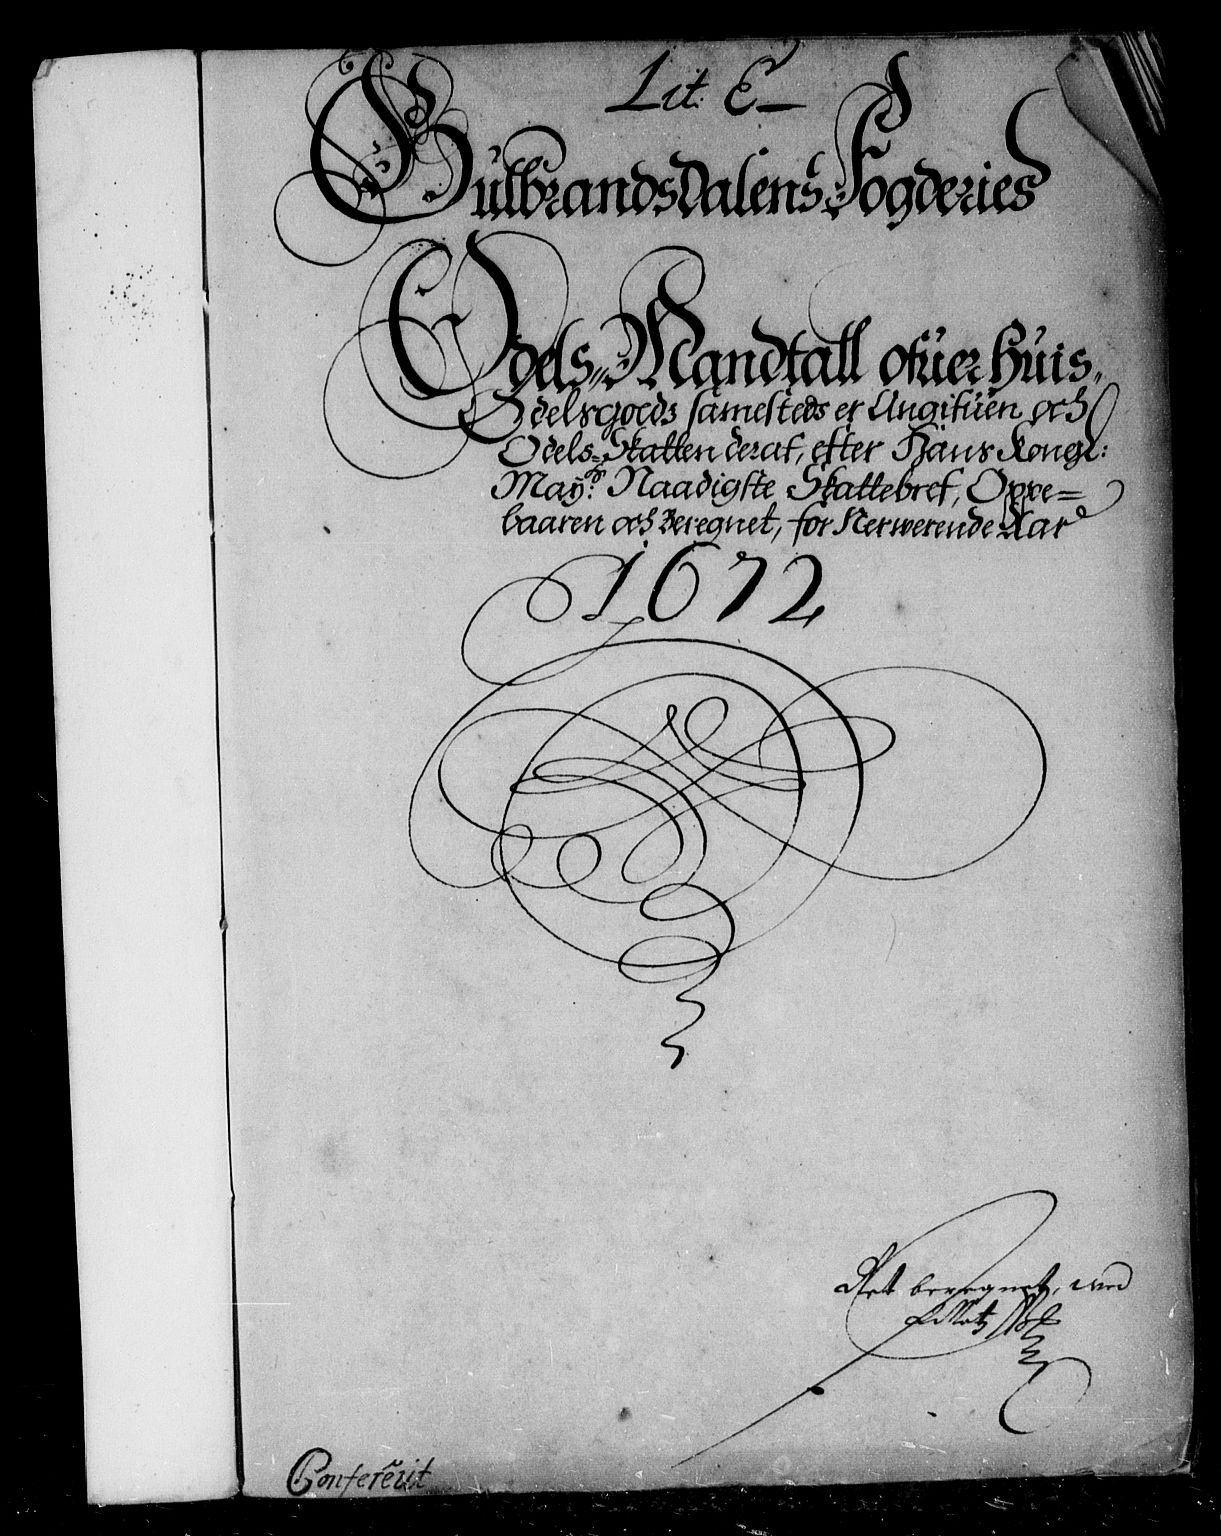 Lit: E
Gulbrandsdalens Fogderies
Odels Mandtall ofuer huis
Odelsgoeds samesteds er Angifuen och
Odels-Skatten deraf, efter Hans Kongl:
Mayts: Naadigste Skattebref, Oppe=
baaren och Beregnet, for Nerwerende Aar
1672
Ret beregnet,
Confererit